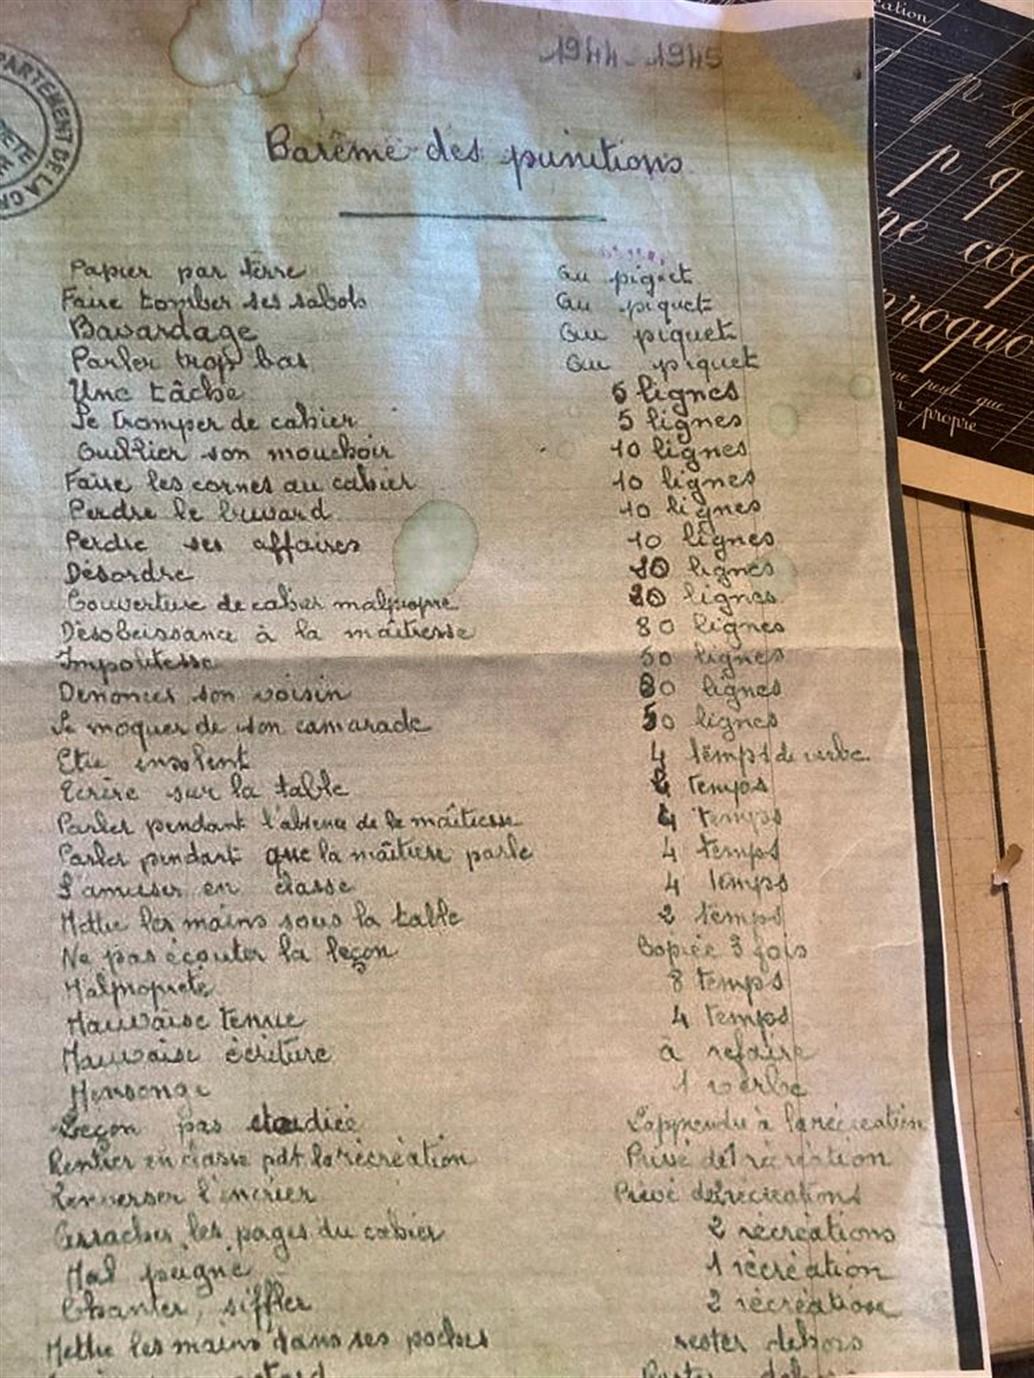 PARTEMENT DE LA CA
1944-1945
Barême des punitions
Papier par terre au piquet
Faire tomber ses sabots au piquet
Bavardage au piquet
Parler trop bas au piquet
Une tâche 5 lignes
Se tromper de cahier 5 lignes
Oublier son mouchoir 10 lignes
Faire les cornes au cahier 10 lignes
Perdre le buvard 10 lignes
Perdre ses affaires 10 lignes
Désordre lignes
Couverture de cahier malpropre lignes
Désobeissance à la maîtresse 80 lignes
Impolitesse 50 lignes
Denoncer son voisin lignes
Se moquer de son camarade 50 lignes
Etre insolent 4 temps de verbe
Ecrire sur la table temps
Parler pendant l'absence de la maîtresse 4 temps
Parler pendant que la maîtresse parle 4 temps
S'amuser en classe 4 temps
Mettre les mains sous la table 2 temps
Ne pas écouter la leçon Copiée 3 fois
Malpropreté 8 temps
Mauvaise tenue 4 temps
Mauvaise écriture à refaire
Mensonge 1 verbe
Leçon pas étudiée L'apprendre à la récréation
Rentrer en classe pdt la récréation Privé de 1 récréation
Renverser l'encrier Privé de 2 récréations
Arracher les pages du cahier 2 récréations
Mal peigné 1 récréation
Chanter, siffler 2 récréations
Mettre les mains dans ses poches rester dehors
retard Rester dehors
ation
p q
p q
ne coq
roquo
ne peut que
propre